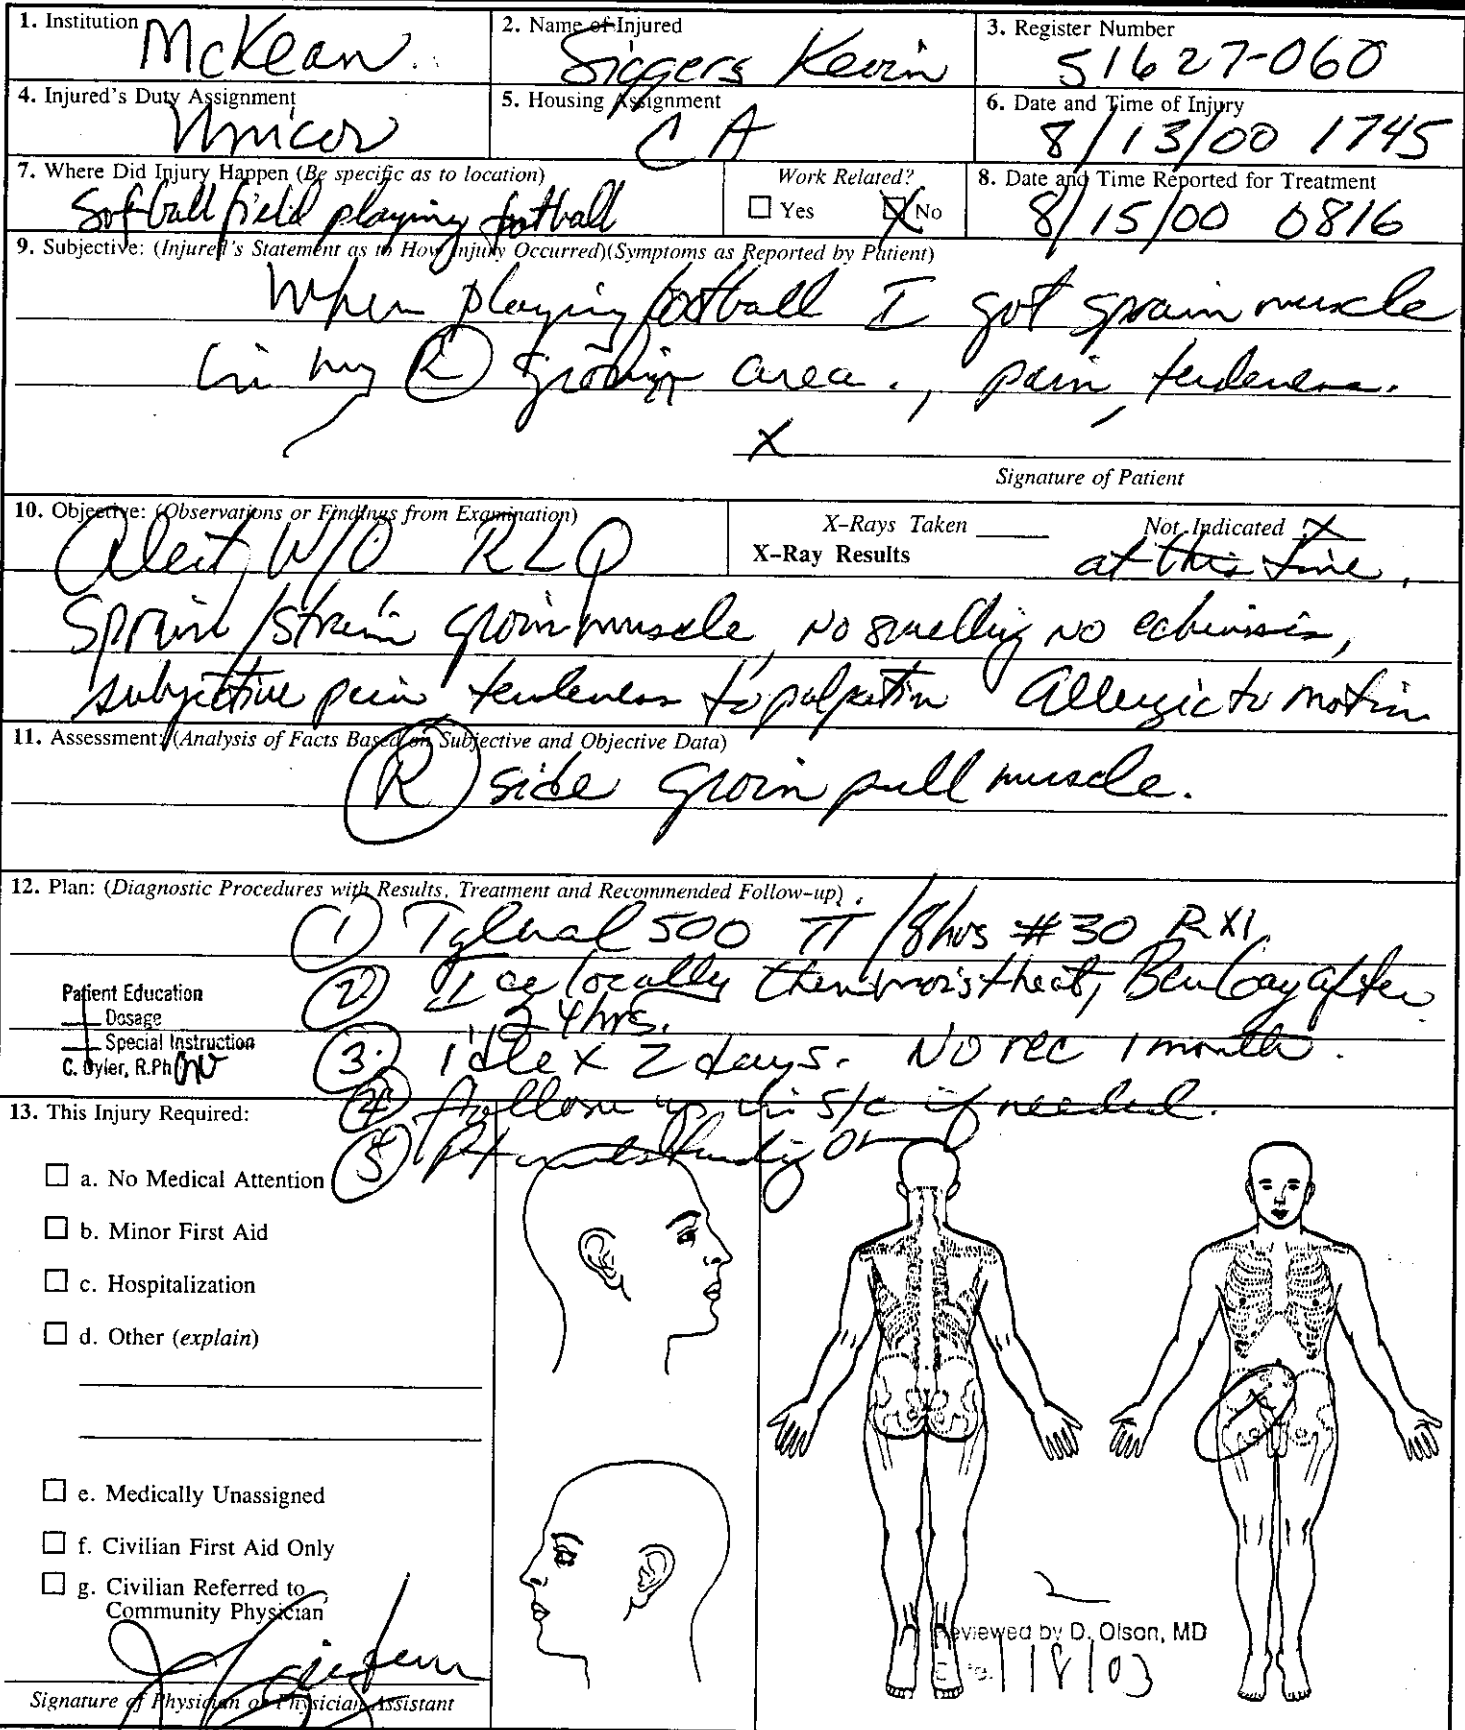 1. Institution McKean
2. Name of Injured Siggers Kevin
3. Register Number 51627-060
4. Injured's Duty Assignment Unicor
5. Housing Assignment CA
6. Date and Time of Injury 8/13/00 1745
7. Where Did Injury Happen (Be specific as to location) Softball field playing football
Work Related? Yes No
8. Date and Time Reported for Treatment 8/15/00 0816
9. Subjective: (Injured's Statement as to How Injury Occurred)(Symptoms as Reported by Patient)
When playing football I got sprain muscle
in my R area., pain, tenderness.
X
Signature of Patient
10. Objective: (Observations or Findings from Examination)
X-Rays Taken Not Indicated X
X-Ray Results at this time,
Alert, W/O RLQ
Sprain/strain groin muscle, No swelling No
subjective pain tenderness to palpation Allergic to motrin
11. Assessment: (Analysis of Facts Based on Subjective and Objective Data)
R side groin pull muscle.
12. Plan: (Diagnostic Procedures with Results, Treatment and Recommended Follow-up)
1 500 II /8hrs #30 RX1
2 Ice locally then moist heat, Ben Gay after
24hrs.
Patient Education
Dosage
Special Instruction
C. Oyler, R.Ph
3. idle x 2 days. No rec 1 month.
4 follow up in s/c if needed.
5 Pt
13. This Injury Required:
a. No Medical Attention
b. Minor First Aid
c. Hospitalization
d. Other (explain)
e. Medically Unassigned
f. Civilian First Aid Only
g. Civilian Referred to
Community Physician
Signature of Physician or Physician Assistant
Reviewed by D. Olson, MD
1/8/03